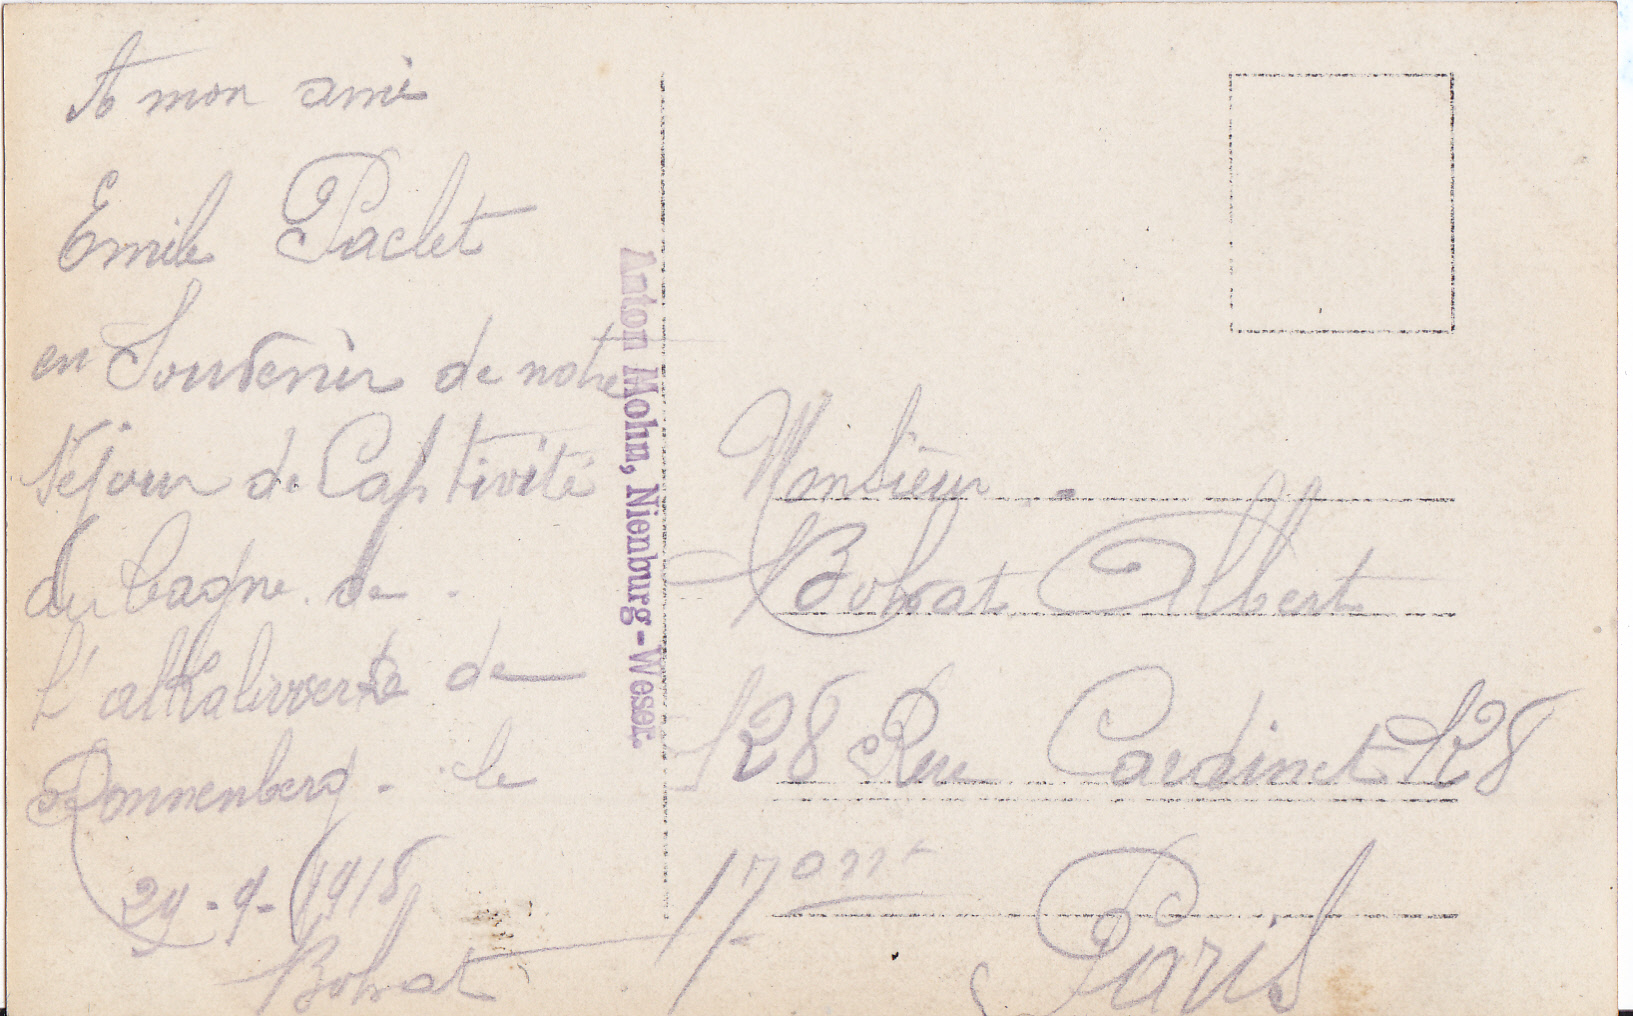 A mon ami
Emile Paclet
en Souvenir de notre
Séjour de Captivité
du bagne de
L'alkaliwerke de
Ronnenberg. le
29-9-1918
Bolvrat
Anton Mohn, Nienburg-Weser.
Monsieur
Bolvrat Albert
128 Rue Cardinet 128
17
Paris